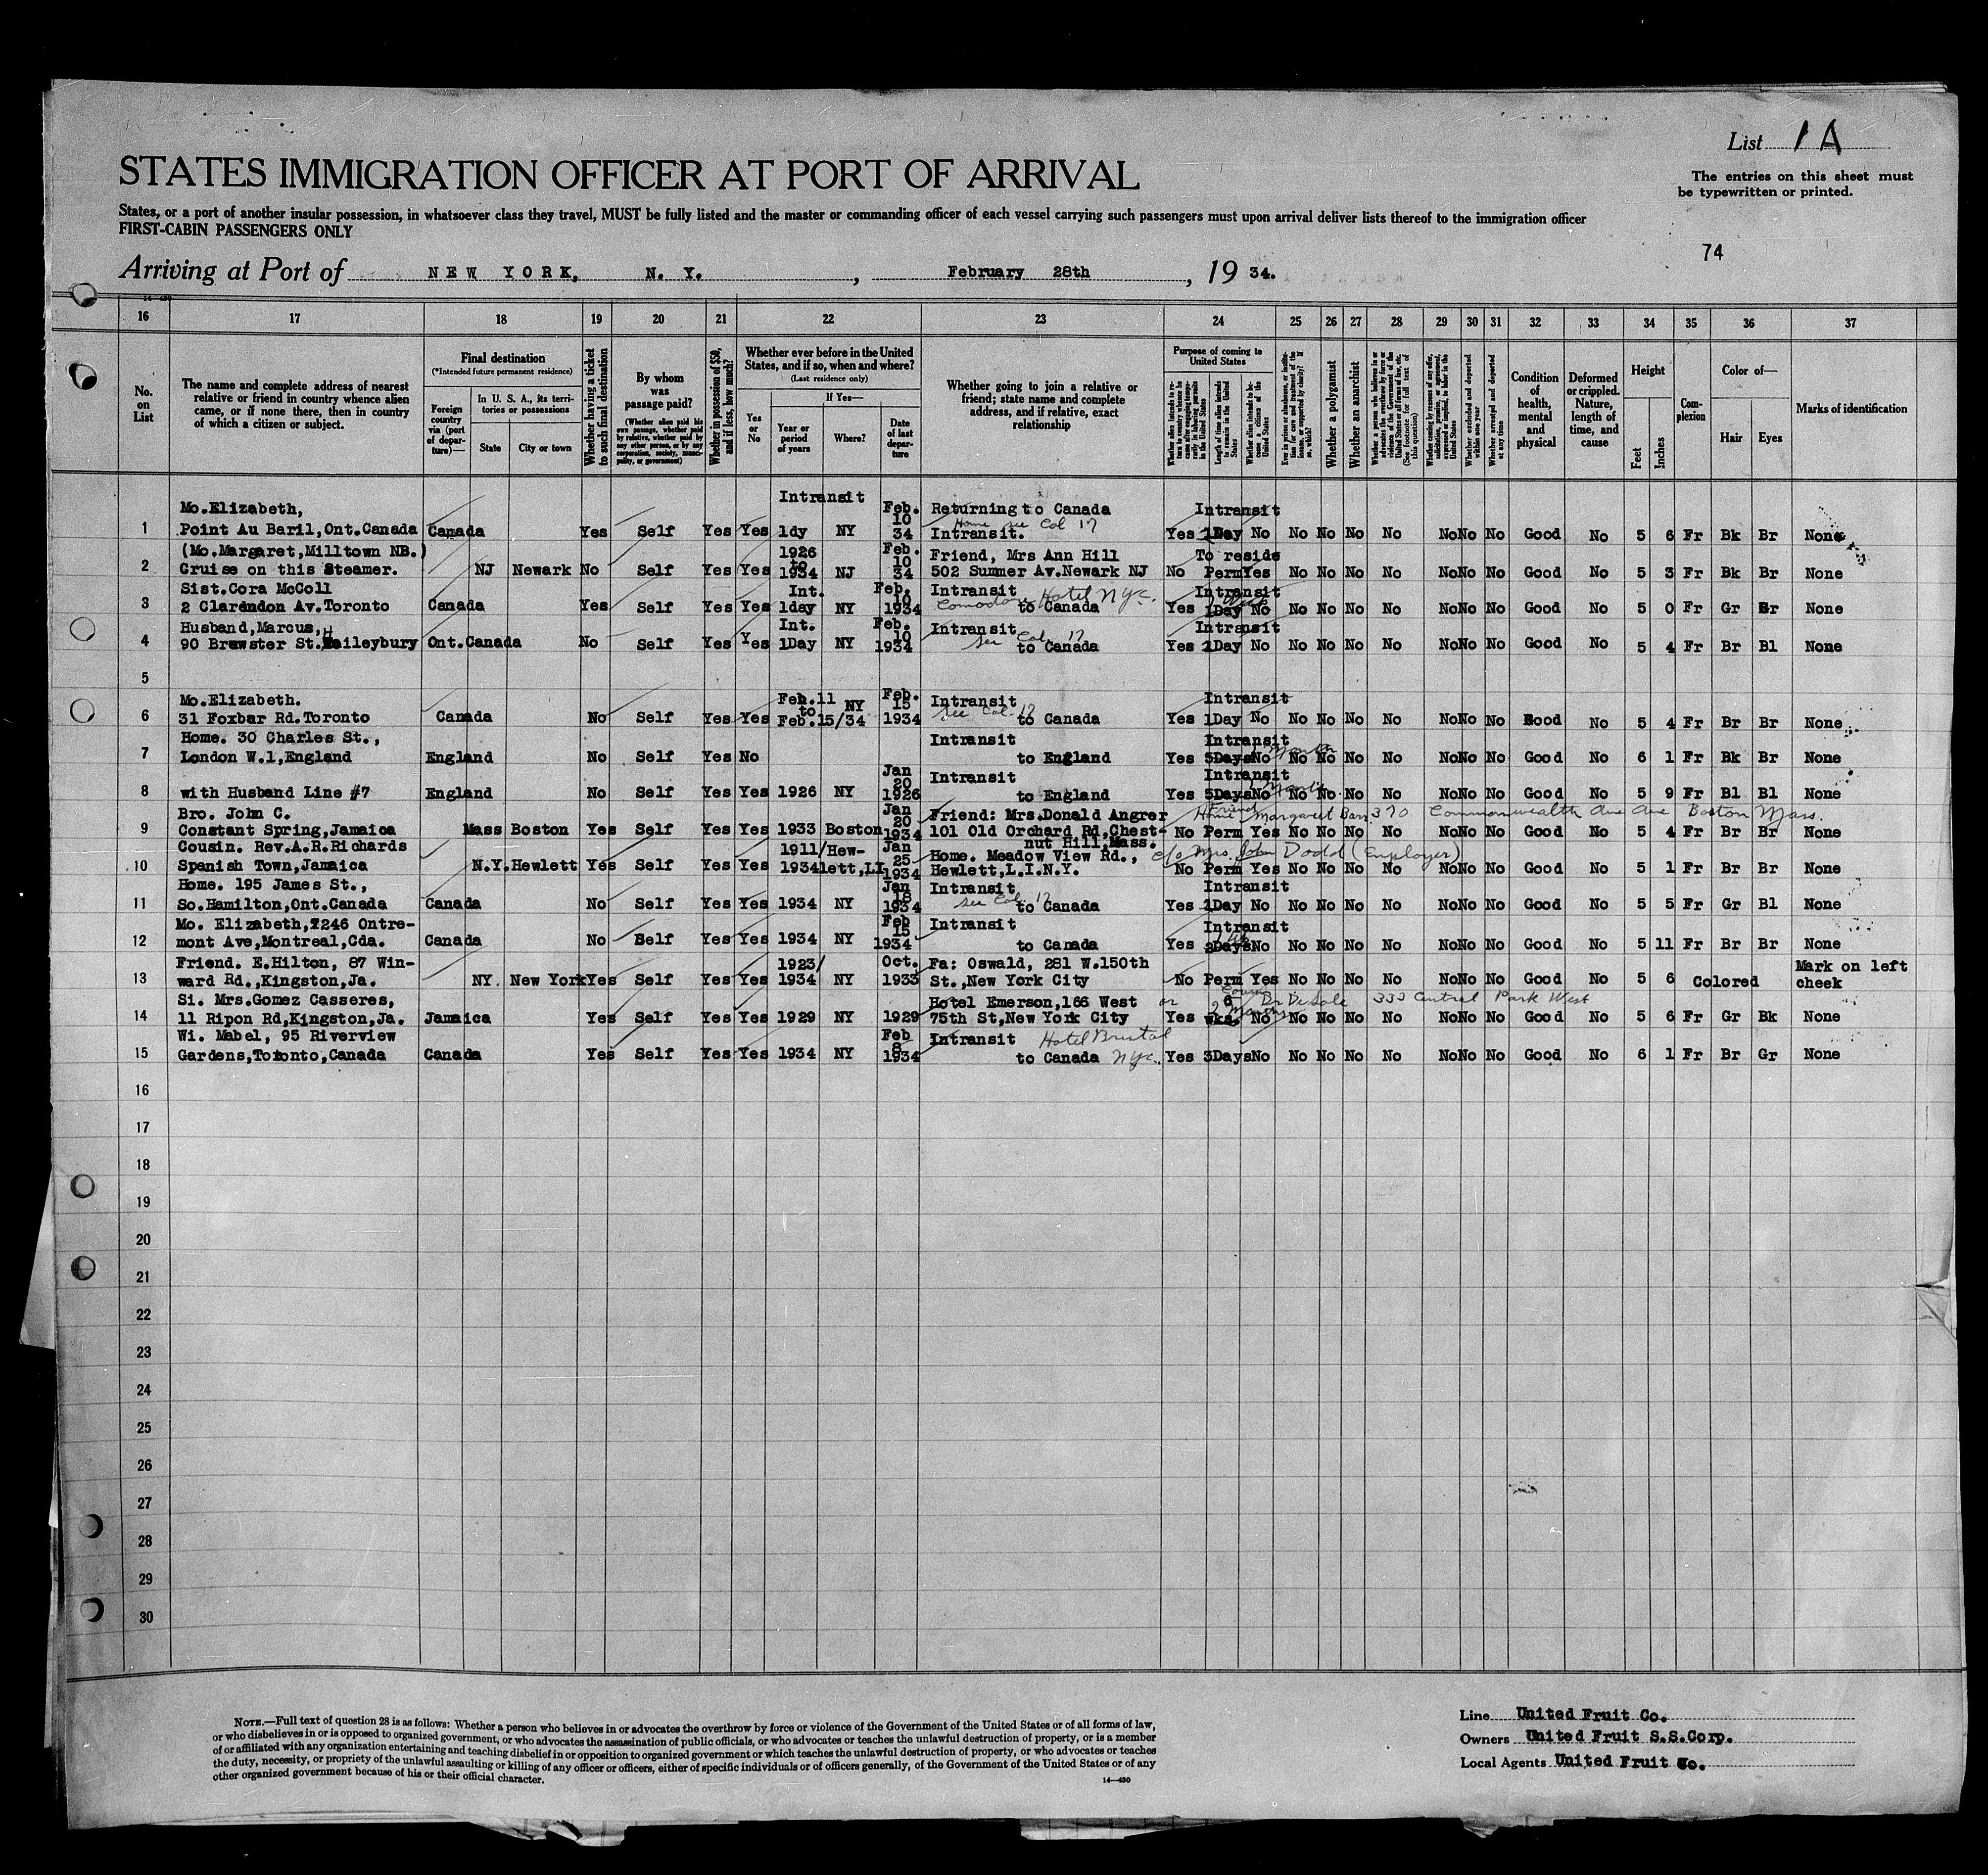 List 1A
The entries on this sheet must
be typewritten or printed.
STATES IMMIGRATION OFFICER AT PORT OF ARRIVAL
States, or a port of another insular possession, in whatsoever class they travel, MUST be fully listed and the master or commanding officer of each vessel carrying such passengers must upon arrival deliver lists thereof to the immigration officer
FIRST-CABIN PASSENGERS ONLY
74
Arriving at Port of NEW YORK, N. Y., February 28th, 1934.
16 17 18 19 20 21 22 23 24 25 26 27 28 29 30 31 32 33 34 35 36 37
No. on List
The name and complete address of nearest relative or friend in country whence alien came, or if none there, then in country of which a citizen or subject.
Final destination
(*Intended future permanent residence)
Foreign country via (port of departure)—
In U. S. A., its territories or possessions
State
City or town
Whether having a ticket to such final destination
By whom was passage paid?
(Whether alien paid his own passage, whether paid by relative, whether paid by any other person, or by any corporation, society, municipality, or government)
Whether in possession of $50, and if less, how much?
Whether ever before in the United States, and if so, when and where?
(Last residence only)
Yes or No
If Yes—
Year or period of years
Where?
Date of last departure
Whether going to join a relative or friend; state name and complete address, and if relative, exact relationship
Purpose of coming to United States
Length of time alien intends to remain in the United States
Whether alien intends to become a citizen of the United States
Whether a polygamist
Whether an anarchist
Whether excluded and deported within one year
Whether arrested and deported at any time
Condition of health, mental and physical
Deformed or crippled. Nature, length of time, and cause
Height
Feet
Inches
Complexion
Color of—
Hair
Eyes
Marks of identification
Mo.Elizabeth, Intransit Feb. 10 Returning to Canada Intransit
Home see Col 17
1 Point Au Baril,Ont.Canada Canada Yes Self Yes Yes 1dy NY 34 Intransit. Yes 1Day No No No No No No No No Good No 5 6 Fr Bk Br None
(Mo.Margaret,Milltown NB.) 1926 to Feb. 10 Friend, Mrs Ann Hill To reside
2 Cruise on this Steamer. NJ Newark No Self Yes Yes 1934 NJ 34 502 Summer Av.Newark NJ No Perm Yes No No No No No No No Good No 5 3 Fr Bk Br None
Sist.Cora McColl Int. Feb. 10 Intransit Intransit
Comodore Hotel NYC.
3 2 Clarendon Av.Toronto Canada Yes Self Yes Yes 1day NY 1934 to Canada Yes 1Day No No No No No No No No Good No 5 0 Fr Gr Br None
Husband,Marcus, Int. Feb. 10 Intransit Intransit
see Col. 17
4 90 Brewster St.Haileybury Ont.Canada No Self Yes Yes 1Day NY 1934 to Canada Yes 1Day No No No No No No No No Good No 5 4 Fr Br Bl None
5
Mo.Elizabeth. Feb.11 to NY Feb. 15 Intransit Intransit
see Col. 17
6 31 Foxbar Rd.Toronto Canada No Self Yes Yes Feb.15/34 1934 to Canada Yes 1Day No No No No No No No No Good No 5 4 Fr Br Br None
Home. 30 Charles St., Intransit Intransit
Month
7 London W.1,England England No Self Yes No to England Yes 5Days No No No No No No No No Good No 6 1 Fr Bk Br None
Jan 20 Intransit Intransit
Month
8 with Husband Line #7 England No Self Yes Yes 1926 NY 1926 to England Yes 5Days No No No No No No No No Good No 5 9 Fr Bl Bl None
Bro. John C. Jan 20 Friend: Mrs.Donald Angrer
Friend Margaret Barr 370 Commonwealth Ave Boston Mass.
9 Constant Spring,Jamaica Mass Boston Yes Self Yes Yes 1933 Boston 1934 101 Old Orchard Rd,Chestnut Hill,Mass. No Perm Yes No No No No No No No Good No 5 4 Fr Br Br None
Cousin. Rev.A.R.Richards 1911/ Hew- Jan 25 Home. Meadow View Rd.,
c/o Mrs. John Dodd (Employer)
10 Spanish Town,Jamaica N.Y. Hewlett Yes Self Yes Yes 1934 lett,LI 1934 Hewlett,L.I.N.Y. No Perm Yes No No No No No No No Good No 5 1 Fr Br Br None
Home. 195 James St., Jan 18 Intransit Intransit
see Col. 17
11 So.Hamilton,Ont.Canada Canada No Self Yes Yes 1934 NY 1934 to Canada Yes 1Day No No No No No No No No Good No 5 5 Fr Gr Bl None
Mo. Elizabeth,7246 Ontre- Feb 15 Intransit Intransit
12 mont Ave,Montreal,Cda. Canada No Self Yes Yes 1934 NY 1934 to Canada Yes 2Days No No No No No No No No Good No 5 11 Fr Br Br None
Friend. E.Hilton, 87 Win- 1923/ Oct. Fa: Oswald, 281 W.150th Mark on left
13 ward Rd.,Kingston,Ja. NY. New York Yes Self Yes Yes 1934 NY 1933 St.,New York City No Perm Yes No No No No No No No Good No 5 6 Colored cheek
Si. Mrs.Gomez Casseres, Hotel Emerson,166 West 6
or Dr DeSola 333 Central Park West
14 11 Ripon Rd,Kingston,Ja. Jamaica Yes Self Yes Yes 1929 NY 1929 75th St,New York City Yes wks. No No No No No No No No Good No 5 6 Fr Gr Bk None
Wi. Mabel, 95 Riverview Feb 8 Intransit
Hotel Bristol NYC.
15 Gardens,Toronto,Canada Canada Yes Self Yes Yes 1934 NY 1934 to Canada Yes 3Days No No No No No No No No Good No 6 1 Fr Br Gr None
16
17
18
19
20
21
22
23
24
25
26
27
28
29
30
NOTE.—Full text of question 28 is as follows: Whether a person who believes in or advocates the overthrow by force or violence of the Government of the United States or of all forms of law,
or who disbelieves in or is opposed to organized government, or who advocates the assassination of public officials, or who advocates or teaches the unlawful destruction of property, or is a member
of or affiliated with any organization entertaining and teaching disbelief in or opposition to organized government or which teaches the unlawful destruction of property, or who advocates or teaches
the duty, necessity, or propriety of the unlawful assaulting or killing of any officer or officers, either of specific individuals or of officers generally, of the Government of the United States or of any
other organized government because of his or their official character.
14—430
Line United Fruit Co.
Owners United Fruit S.S.Corp.
Local Agents United Fruit Co.